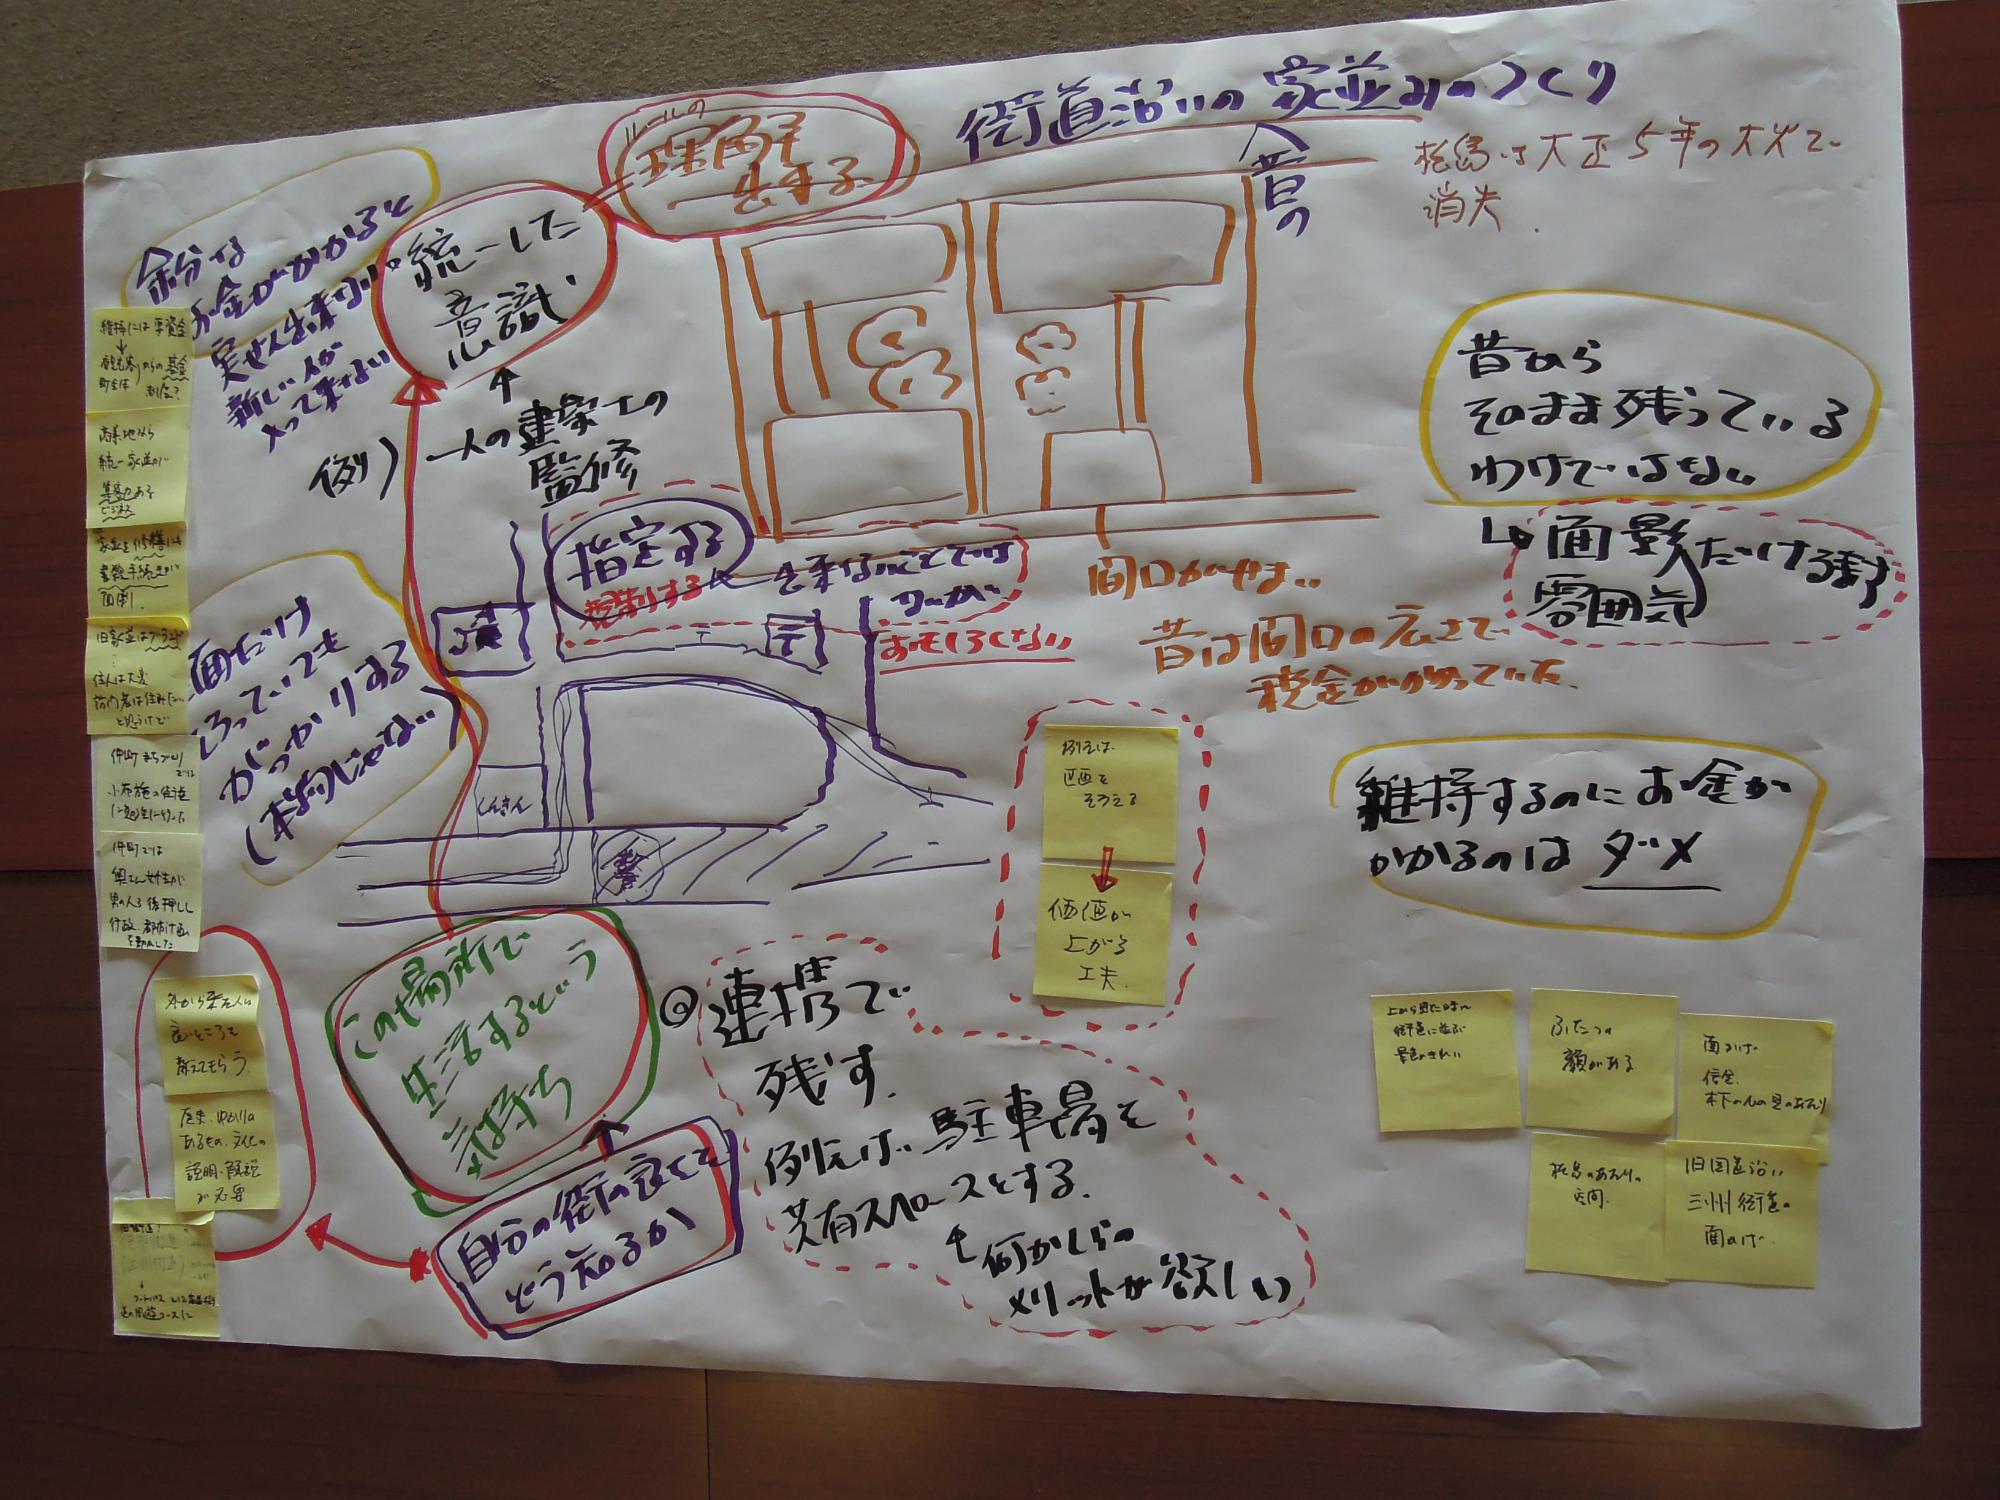 街道沿いの家並みのつくり
昔の
松島は大正5年の大火で
消失.
ルールの
理解
出来る
統一した
意識
例) 一人の建築士の
監修
余分な
お金がかかると
実せん出来ない
新しい人が
入って来ない
昔から
そのまま残っている
わけではない
↳面影だける残す
雰囲気
指定する
規制する ← 出来ないことでは
おもしろくない
間口がせまい
昔は間口の広さで
税金がかかっていた.
面だけ
そろっていても
がっかりする
くんきん
維持するのにお金が
かかるのはダメ
例えば
区画を
そろえる
価値が
上がる
工夫.
この場所で
生活するという
気持ち
自分の街の良さを
どう知るか
◎連携で
残す.
例えば、駐車場を
共有スペースとする.
何かしらの
メリットが欲しい
上から見た時に
街道に並ぶ
景色がきれい
ふたつの
顔がある
旧国道沿い
三州街道の
維持には要資金
商業地なら
統一家並が
集客力ある
ビジネス
家並を修繕には
書類手続きが
面倒.
住人は大変
訪問者は住みたい
と思うけど
仲町まちづくり
小布施の街並
仲町では
奥さん女性が
男の人を後押しし
行政、都市計画
を動かした
外から来た人に
良いところを
教えてもらう.
歴史、ゆかりの
あるもの、文化の
説明・解説
が必要